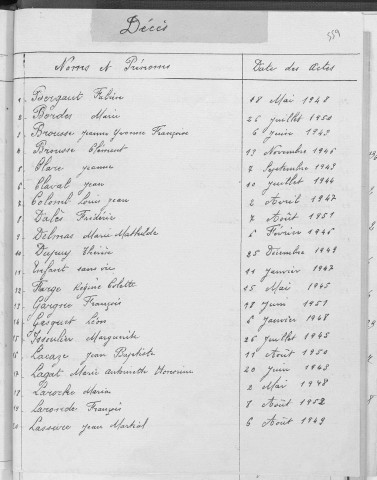 Décès
559
Noms et Prénoms Date des Actes
1 Borgaut Fabien 18 Mai 1948
2 Bordes Marie 25 Juillet 1950
3 Brousse Jeanne Yvonne Françoise 6 Juin 1949
4 Brousse Clément 19 Novembre 1946
5 Clare Jeanne 7 Septembre 1943
6 Claval Jean 10 Juillet 1944
7 Colomb Louis Jean 2 Avril 1947
8 Dalès Frédéric 7 Août 1951
9 Delmas Marie Mathilde 6 Février 1946
10 Dupuy Thérèse 25 Décembre 1949
11 Enfant sans vie 11 Janvier 1947
12 Farge Régine Colette 15 Mai 1945
13 Gargne François 18 Juin 1951
14 Gasquet Léon 6 Janvier 1948
15 Marguerite 26 Juillet 1945
16 Lacaze Jean Baptiste 11 Août 1950
17 Lagat Marie Antoinette Honorine 20 Juin 1948
18 Laroche Maria 2 Mai 1948
19 Laronde François 1 Août 1952
20 Lasserre Jean Martial 6 Août 1949